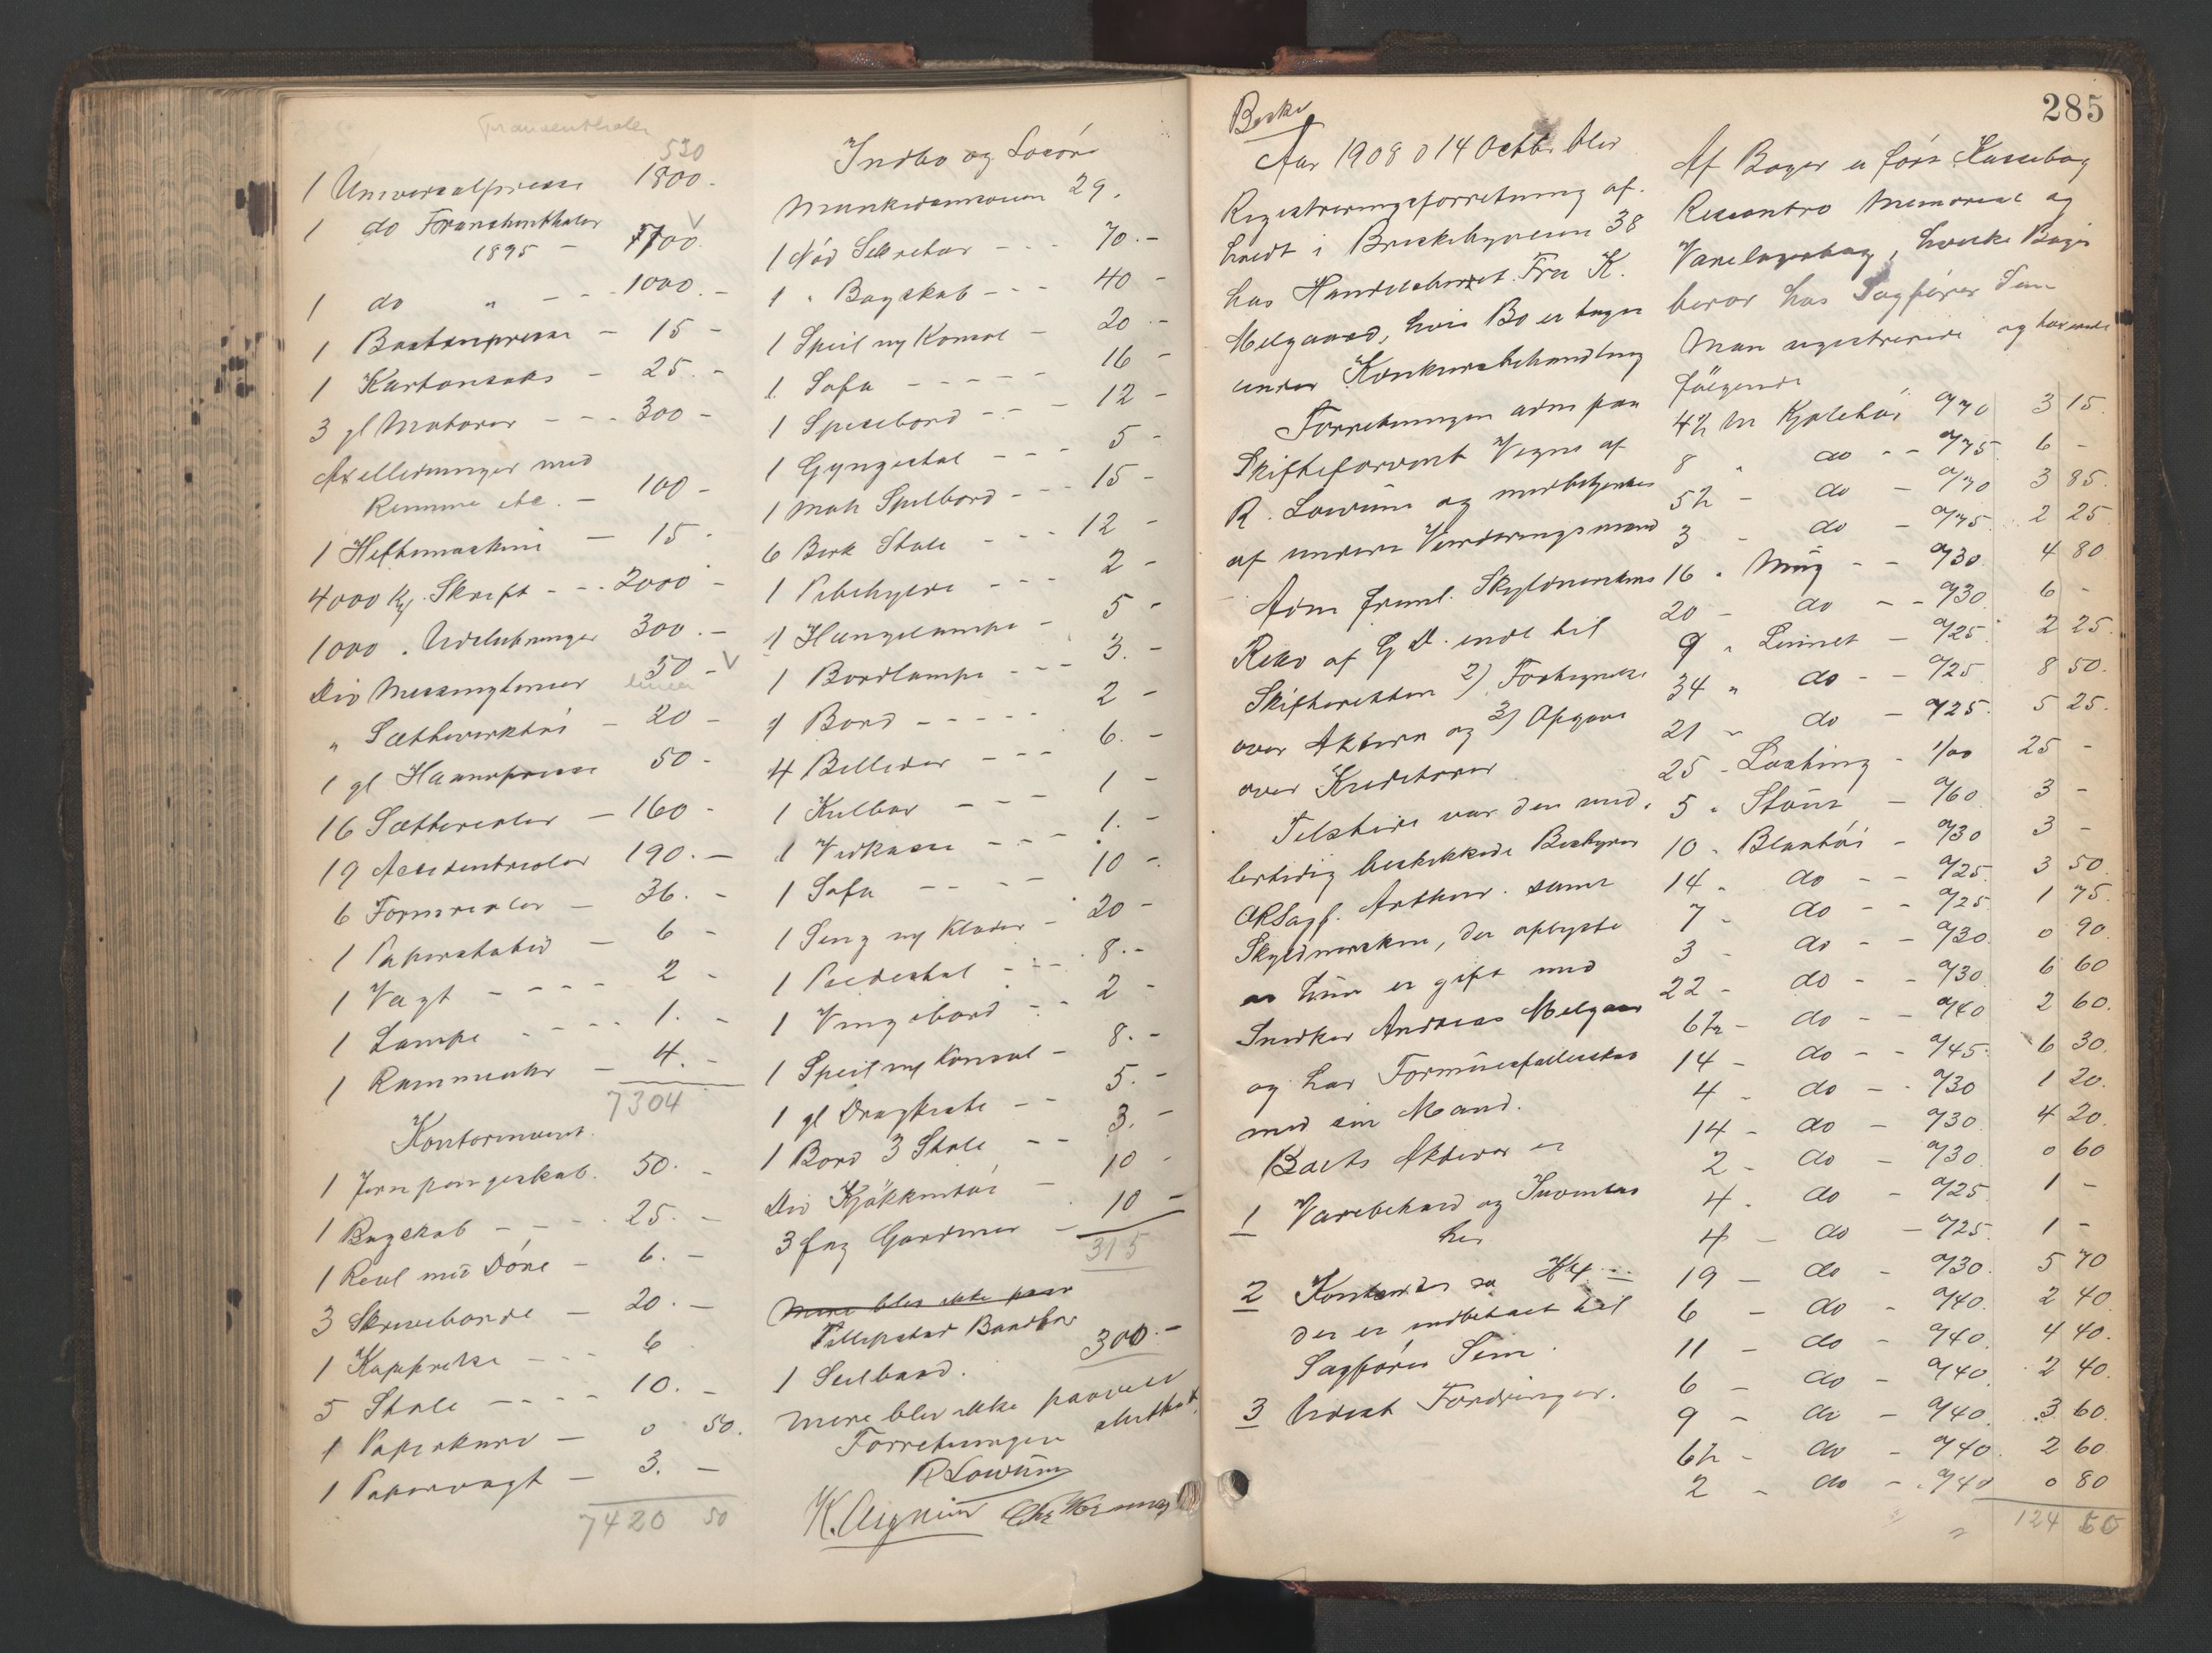 Frankenthaler
530
1 Universalpresse 1800.
1 do Frankenthaler
1895 - 1700.
1 do " - - 1000. -
1 Bostonpresse - 15 -
1 Kartonsaks - 25. -
3 gl Motorer - - - 300 -
Axelledninger med
Remme etc. - 100 -
1 Heftemaskine - 15 -
4000 Kg. Skrift - - 2000 -
1000 . Udslutninger 300. -
Div Messinglinier 50 -
linier
" Sætteverktøi - 20 -
1 gl Haandpresse 50 -
16 Sættereoler - 160 -
19 Accidentreoler 190. -
6 Formreoler - 36. -
1 Papirstativ - 6 -
1 Vægt - - - - 2 -
1 Lampe - - - - 1. -
1 Rammeuhr - 4. -
7304
Kontorinvent.
1 Jernpengeskab. 50. -
1 Bogskab - - - 25. -
1 Reol med Döre - 6. -
3 Skriveborde - 20. -
1 Kopipresse - - - 6
5 Stole - - - - 10. -
1 Papirkurv - 0 50.
1 Papirvægt - 3. -
7420 50
Indbo og Losöre
Munkedamsveien 29.
1 Nöd Sekretær - - - 70. -
1 " Bogskab - - - 40 -
1 Speil og Konsol - 20 -
1 Sofa - - - - - 16 -
1 Spisebord - - - 12 -
1 Gyngestol - - - 5 -
1 Mah Spilbord - - - 15 -
6 Birk Stole - - - 12 -
1 Pibehylde - - - 2 -
1 Hængelampe - 5 -
1 Bordlampe - - - 3. -
1 Bord - - - - - 2 -
4 Billeder - - - 6. -
1 Kulbox - - - 1 -
1 Vedkasse - - - 1. -
1 Sofa - - - - 10 -
1 Seng og Klæder - 20 -
1 Piedestal - - - 8. -
1 Vingebord - - 2 -
1 Speil og Konsol - 8. -
1 gl Dragkiste - - 5. -
1 Bord 3 Stole - - 3. -
Div Kjökkentöi - 10 -
3 fag Gardiner - 10 -
315
Mere blev ikke paav
Fillipstad Baadhavn
1 Seilbaad. 300. -
Mere blev ikke paavist
Forretningen sluttet.
R Lowum
285
Aar 1908 d 14 Octbr. blev
Registreringsforretning af-
holdt i Briskebyveien 38
hos Handelsberet. Fru K.
Melgaard, hvis Bo er tagen
under Konkursbehandling
Forretningen adm paa
Skifteforvalt Vegne af
R. Lowum og medbetjentes
af undern Vurderingsmænd
Adm freml. Skyldnerskens
Rekv af G D. indl til
Skifteretten 2) Fortegnelse
over Aktiva og 3) Opgave
over Kreditorer
Tilstede var den mid-
lertidig beskikkede Bestyrer
ORSagf. Arthur. samt
Skyldnersken, der oplyste
at hun er gift med
Snedker Andreas Melgaar
og har Formuesfællesskab
med sin Mand.
Boets Aktiver er
1 Varebehold og Inventar
her
2 Kontanter ca
der er indbetalt til
Sagförer Sem.
3 Udest Fordringer.
Af Böger er fört Kassebog
Rescontro Memorial og
Varelagerbog, hvilke Böger
beror hos Sagförer Sem
Man registrerede og taxerede
fölgende
4½ m Kjoletöi a/70 3 15.
8 " do - - a/75 6 -
5½ - do - a/70 3 85.
3 - do - a/75 2 25
16 " Möy - - a/30 4 80
20 - do - - a/30 6 -
9 " Linnet - a/25 2 25.
34 " do - - a/25 8 50.
21 " do - a/25. 5 25.
25 - Lasting - 1/00 25 -
5 " Stout - a/60 3 -
10 " Blaatöi - a/30 3 -
14 " do - - a/25 3 50.
7 - do - - a/25 1 75.
3 - do - - a/30 0 90.
22 - do - - a/30 6 60
6½ - do - - a/40 2 60.
14 - do - - a/45 6 30.
4 - do - - a/30 1 20.
14 - do - a/30 4 20.
2 - do - a/30 0 60
4 - do - a/25 1 -
4 - do - a/25. 1 -
19 - do - a/30. 5 70
6 - do - a/40. 2 40.
11 - do - a/40. 4 40.
6 - do - a/40. 2 40.
9 - do - a/40. 3 60.
6½ - do - a/40. 2 60.
2 - do - a/40 0 80
124 60